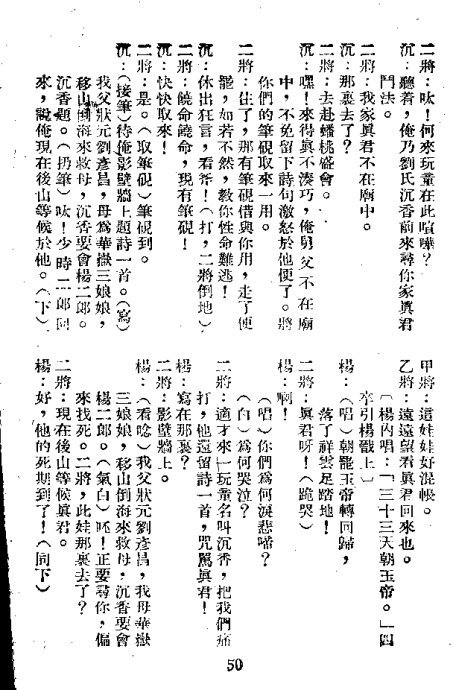 二將：呔！何來玩童在此喧嘩？
沉：聽着，俺乃劉氏沉香前來尋你家眞君
鬥法。
二將：我家眞君不在廟中。
沉：那裏去了？
二將：去赴蟠桃盛會。
沉：嘿！來得眞不湊巧，俺舅父不在廟
中，不免留下詩句激怒於他便了。將
你們的筆硯取來一用。
二將：住了，那有筆硯借與你用，走了便
罷，如若不然，教你性命難逃！
沉：休出狂言，看斧！（打，二將倒地）
二將：饒命饒命，現有筆硯！
沉：快快取來！
二將：是。（取筆硯）筆硯到。
沉：（接筆）待俺影壁牆上題詩一首。（寫）
我父狀元劉彥昌，母爲華嶽三娘娘，
移山倒海來救母，沉香要會楊二郎。
沉香題。（扔筆）呔！少時二郎回
來，說俺現在後山等候於他。（下）
甲將：這娃娃好混帳。
乙將：遠遠望看眞君回來也。
〔楊內唱：「三十三天朝玉帝。」四
卒引楊戩上〕
楊：（唱）朝罷玉帝轉回歸，
落了祥雲足踏地！
二將：眞君呀！（跪哭）
楊：啊！
（唱）你們爲何淚悲啼？
（白）爲何哭泣？
二將：適才來一玩童名叫沉香，把我們痛
打，他還留詩一首，咒罵眞君！
楊：寫在那裏？
二將：影壁牆上。
楊：（看唸）我父狀元劉彥昌，我母華嶽
三娘娘，移山倒海來救母，沉香要會
楊二郎。（氣白）呸！正要尋你，偏
來找死。二將，此娃那裏去了？
二將：現在後山等候眞君。
楊：好，他的死期到了！（同下）
50